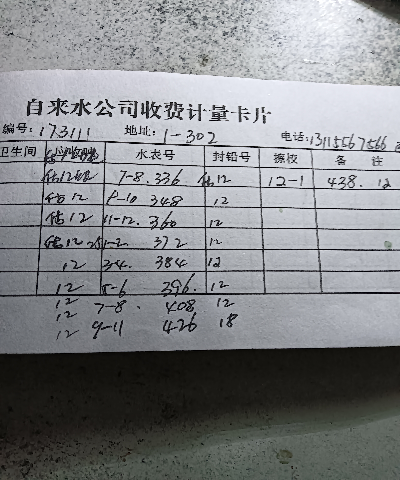 自来水公司收费计量卡片
编号：173111 地址：1-302 电话：13115567566
卫生间 水表号 封铅号 擦校 备 注
估12 7-8.336 估12 12-1 438. 12
估12 9-10 348 12
估12 11-12. 360 12
估12 1-2 372 12
12 3-4. 384 12
12 5-6 396. 12
12 7-8. 408 12
12 9-11 426 18